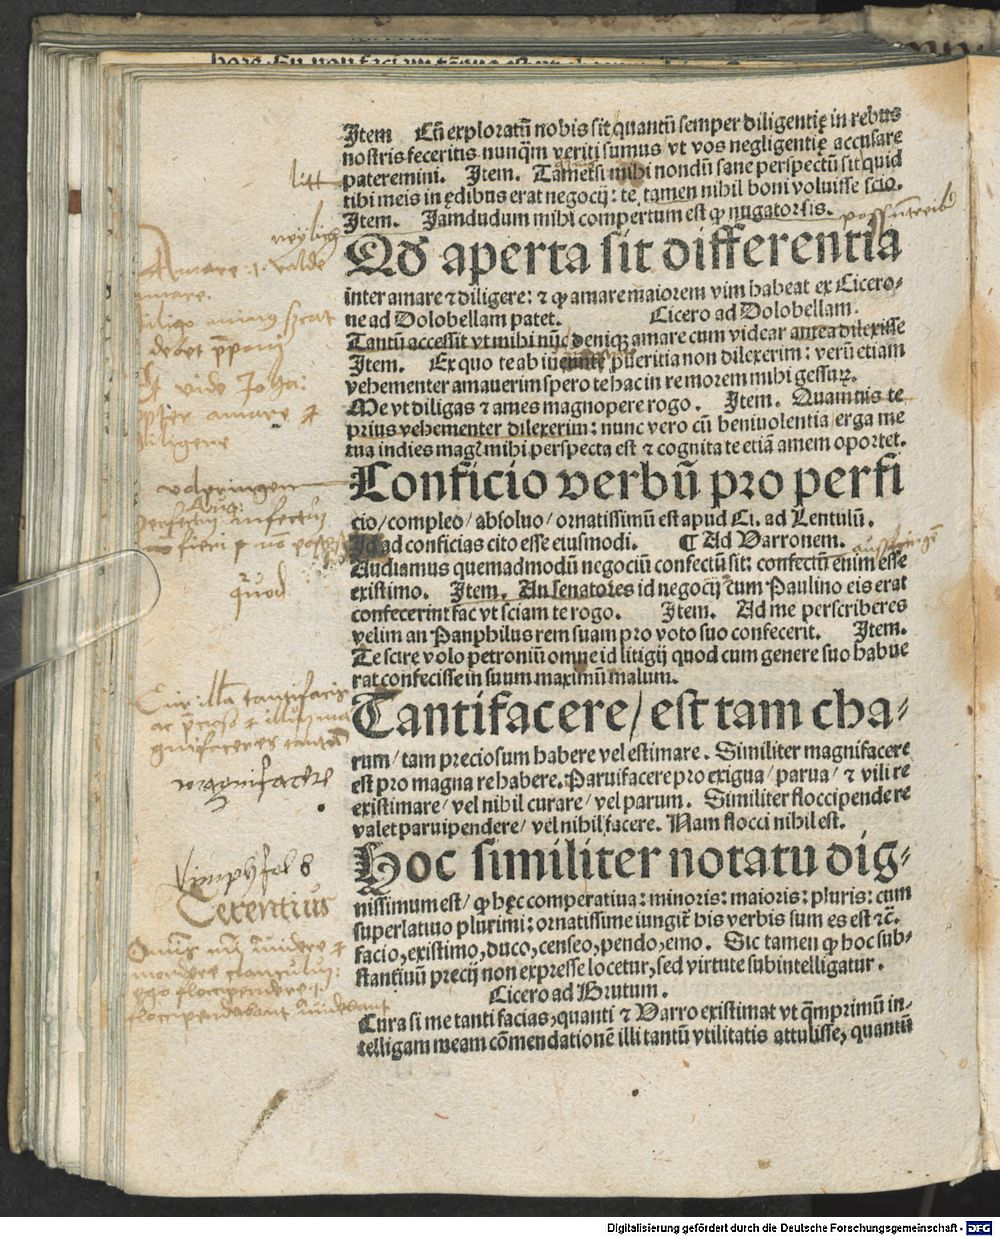 Item Cū exploratū nobis sit quantū semper diligentię in rebus
nostris feceritis nunq̄m veriti sumus vt vos negligentię accusare
pateremini. Item. Tametsi mihi nondū sane perspectū sit quid
tibi meis in ędibus erat negocij: te tamen nihil boni voluisse scio.
Item. Jamdudum mihi compertum est ꝙ nugatorsis.
Qď aperta sit differentia
inter amare ⁊ diligere: ⁊ ꝙ amare maiorem vim habeat ex Cicero-
ne ad Dolobellam patet. Cicero ad Dolobellam.
Tantū accessit vt mihi nūc deniqꝫ amare cum videar antea dilexisse
Item. Ex quo te ab iueunte pueritia non dilexerim: verū etiam
vehementer amauerim spero te hac in re morem mihi gessurꝝ.
Me vt diligas ⁊ ames magnopere rogo. Item. Quamuis te
prius vehementer dilexerim: nunc vero cū beniuolentia erga me
tua indies magꝭ mihi perspecta est ⁊ cognita te etiā amem oportet.
Conficio verbū pro perfi
cio/compleo/absoluo/ornatissimū est apud Ci. ad Lentulū.
Id ad conficias cito esse eiusmodi. ¶ Ad Varronem.
Audiamus quemadmodū negociū confectū sit: confectū enim esse
existimo. Item. An senatores id negocij cum Paulino eis erat
confecerint fac vt sciam te rogo. Item. Ad me perscriberes
velim an Panphilus rem suam pro voto suo confecerit. Item.
Te scire volo petroniū omne id litigij quod cum genere suo habue
rat confecisse in suum maximū malum.
Tantifacere/est tam cha-
rum/tam preciosum habere vel estimare. Similiter magnifacere
est pro magna re habere. Paruifacere pro exigua/parua/⁊ vili re
existimare/vel nihil curare/vel parum. Similiter floccipendere
valet paruipendere/vel nihil facere. Nam flocci nihil est.
Hoc similiter notatu dig-
nissimum est/ꝙ hęc comperatiua: minoris: maioris: pluris: cum
superlatiuo plurimi: ornatissime iungit̄ his verbis sum es est ⁊c̄.
facio, existimo, duco, censeo, pendo, emo. Sic tamen ꝙ hoc sub-
stantiuū precij non expresse locetur, sed virtute subintelligatur.
Cicero ad Brutum.
Cura si me tanti facias, quanti ⁊ Varro existimat vt q̄mprimū in-
telligam meam cōmendationē illi tantū vtilitatis attulisse, quantū
Amare .i. valde
amare.
quod
Terentius
Digitalisierung gefördert durch die Deutsche Forschungsgemeinschaft - DFG